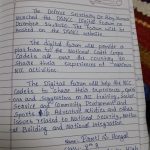 The Defence Secretary Dr Ajay Kumar
launched the DGNCC Digital Forum on
The Forum will be
hosted on the DGNCC website
The digital Forum will provide a
platform for the National Cadet Corps
Cadets all over the country to
share their experiences of various
NCC activities.
The Digital Forum will help the NCC
Cadets to share their experience, opinion
and Suggestions on NCC training, Social
Service and Community Development,
Sports & Adventure Activities and other
issues such to National Security, Nation
Building and National Integration.
Name -